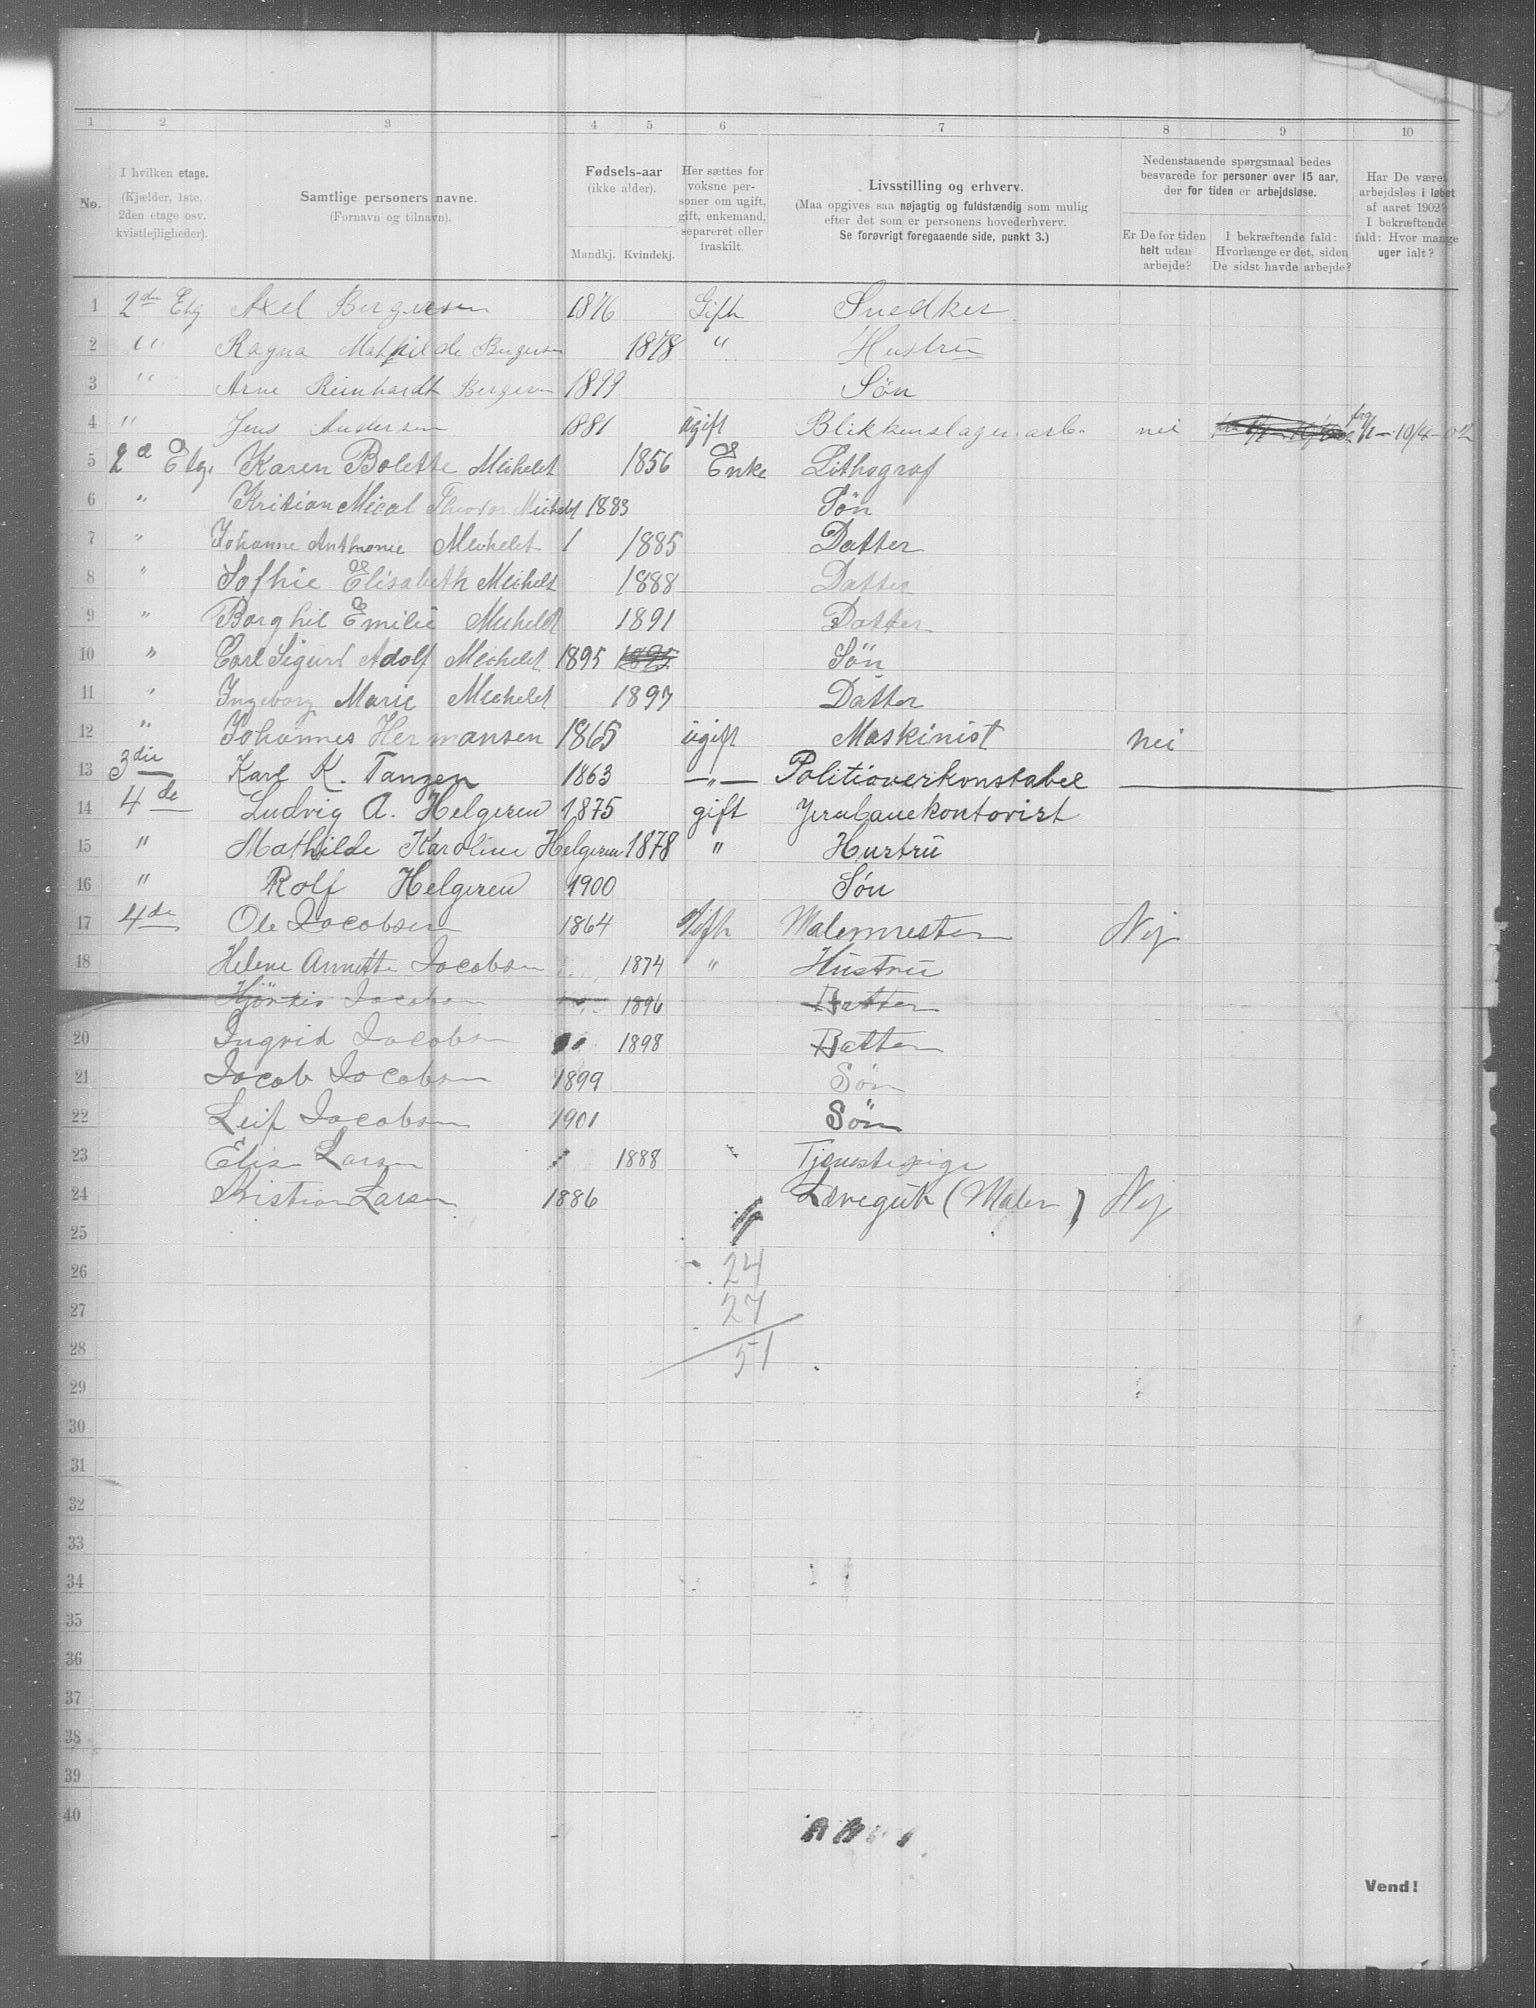 1 2 3 4 5 6 7 8 9 10
No.
I hvilken etage.
(Kjælder, 1ste,
2den etage osv.
kvistlejligheder).
Samtlige personers navne.
(Fornavn og tilnavn).
Fødsels-aar
(ikke alder).
Mandkj. Kvindekj.
Her sættes for
voksne per-
soner om ugift,
gift, enkemand,
separeret eller
fraskilt.
Livsstilling og erhverv.
(Maa opgives saa nøjagtig og fuldstændig som mulig
efter det som er personens hovederhverv.
Se forøvrigt foregaaende side, punkt 3.)
Nedenstaaende spørgsmaal bedes
besvarede for personer over 15 aar,
der for tiden er arbejdsløse.
Er De for tiden
helt uden
arbejde?
I bekræftende fald:
Hvorlænge er det, siden
De sidst havde arbejde?
Har De været
arbejdsløs i løbet
af aaret 1902?
I bekræftende
fald: Hvor mange
uger ialt?
1 2den Etg Axel Bergersen 1876 Gift Snedker
2 " Ragna Mathilde Bergersen 1878 " Hustru
3 " Arne Reinhardt Bergersen 1899 Søn
4 " Jens Andersen 1881 ugift Blikkenslager arb. nei fra 1/2 - 10/4-02
5 2d Etg. Karen Bolette Michelet 1856 Enke Lithograf
6 " Kristian Mical Theodor Michelet 1883 Søn
7 " Johanne Anthonie Michelet 1885 Datter
8 " Sofhie Elisabeth Michelet 1888 Datter
9 " Borghil Emilie Michelet 1891 Datter
10 " Carl Sigurd Adolf Michelet 1895 1895 Søn
11 " Ingeborg Marie Michelet 1897 Datter
12 " Johannes Hermansen 1865 ugift Maskinist nei
13 3die Karl K. Tangen 1863 —"— Politioverkonstabel
14 4de Ludvig A. Helgeren 1875 gift Jernbanekontorist
15 " Mathilde Karoline Helgeren 1878 " Hustru
16 " Rolf Helgeren 1900 Søn
17 4de Ole Jacobsen 1864 Gift Malermester Nej
18 Helene Annette Jacobsen 1874 " Hustru
Hjördis Jacobsen 1896 Datter
20 Ingrid Jacobsen 1898 Datter
21 Jacob Jacobsen 1899 Søn
22 Leif Jacobsen 1901 Søn
23 Elise Larsen 1888 " Tjenestepige
24 Kristian Larsen 1886 Læregut (Maler) Nej
25
26 24
27 27
28 51
29
30
31
32
33
34
35
36
37
38
39
40
Vend!